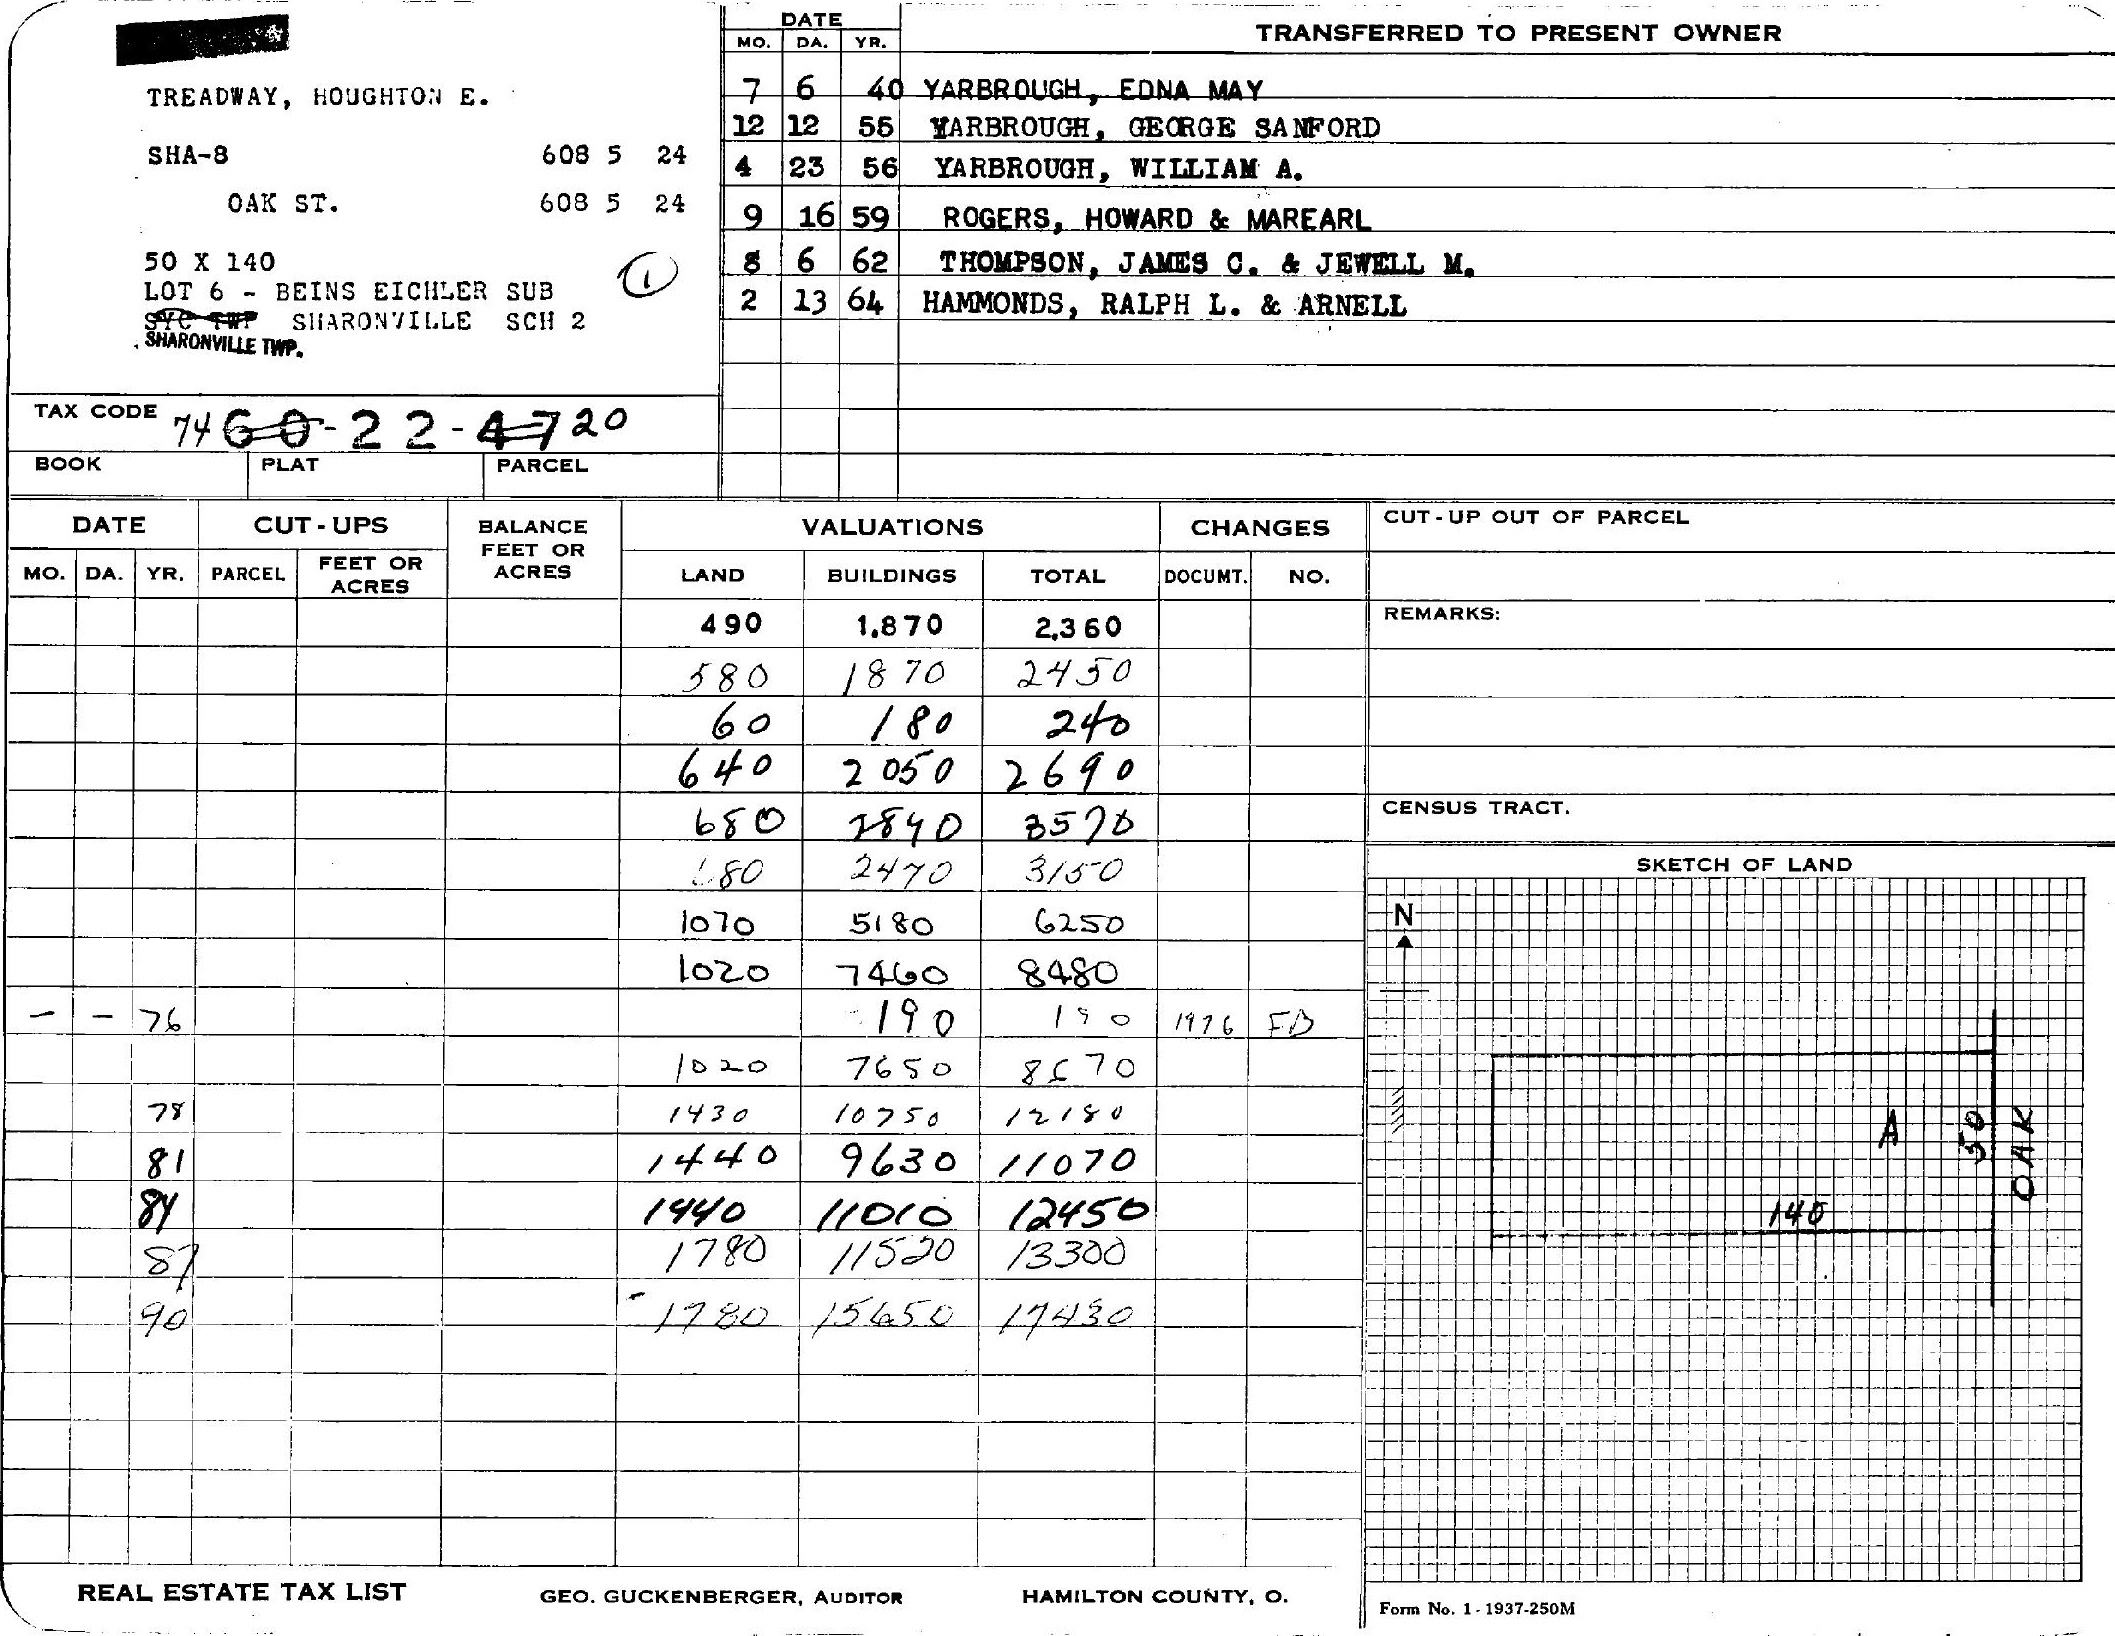 TREADWAY, HOUGHTON E.
SHA-8 608 5 24
OAK ST. 608 5 24
50 X 140
LOT 6 - BEINS EICHLER SUB
1
SYC TWP SHARONVILLE SCH 2
SHARONVILLE TWP.
TAX CODE 74 60-22-47 20
BOOK PLAT PARCEL
DATE TRANSFERRED TO PRESENT OWNER
MO. DA. YR.
7 6 40 YARBROUGH, EDNA MAY
12 12 55 YARBROUGH, GEORGE SANFORD
4 23 56 YARBROUGH, WILLIAM A.
9 16 59 ROGERS, HOWARD & MAREARL
8 6 62 THOMPSON, JAMES C. & JEWELL M.
2 13 64 HAMMONDS, RALPH L. & ARNELL
DATE CUT-UPS BALANCE FEET OR ACRES VALUATIONS CHANGES
MO. DA. YR. PARCEL FEET OR ACRES LAND BUILDINGS TOTAL DOCUMT. NO.
490 1,870 2,360
580 1870 2450
60 180 240
640 2050 2690
680 2890 3570
680 2470 3150
1070 5180 6250
1020 7460 8480
- - 76 190 190 1976 FB
1020 7650 8670
78 1430 10750 12180
81 1440 9630 11070
84 1440 11010 12450
87 1780 11520 13300
90 1780 15650 17430
CUT-UP OUT OF PARCEL
REMARKS:
CENSUS TRACT.
SKETCH OF LAND
N
A
50
OAK
140
REAL ESTATE TAX LIST GEO. GUCKENBERGER, AUDITOR HAMILTON COUNTY, O.
Form No. 1-1937-250M